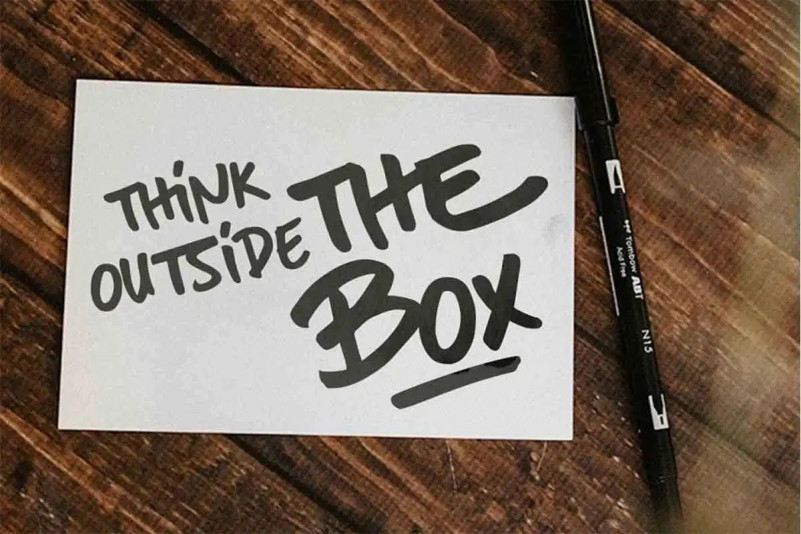 THiNK
OUTSiDE
THE
BOX
TOMBOW ABT
Acid Free
N15